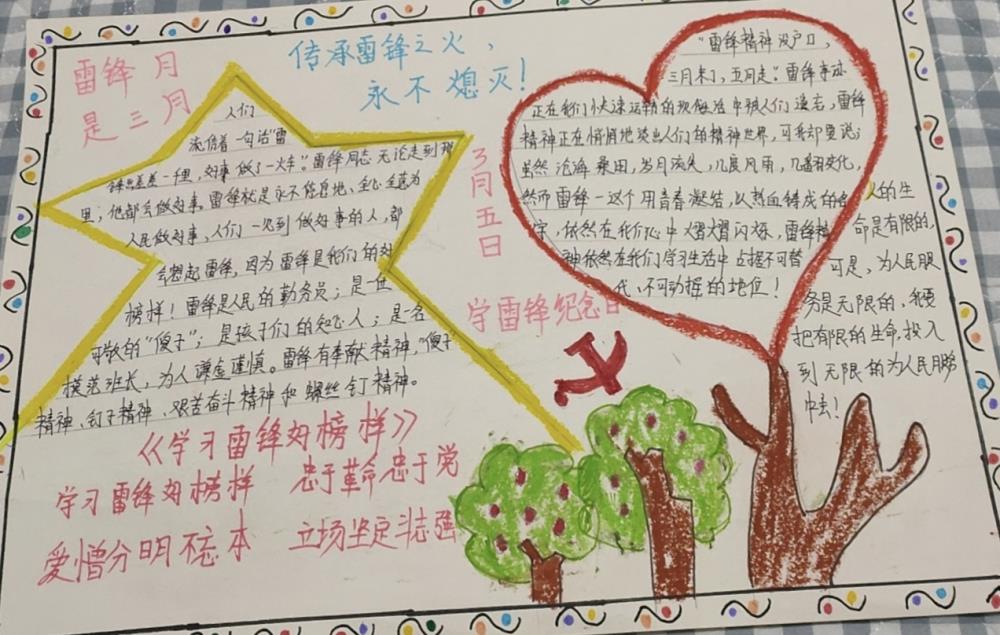 雷锋月
是三月
传承雷锋之火，
永不熄灭！
人们
流传着一句话“雷
锋出差一千里，好事做了一火车”雷锋同志无论走到那
里，他都会做好事，雷锋就是永不停息地、全心全意为
人民做好事，人们一见到做好事的人，都
会想起雷锋，因为雷锋是我们的好
榜样！雷锋是人民的勤务员；是一位
可敬的“傻子”；是孩子们的知心人；是名
模范班长，为人谦虚谨慎。雷锋有奉献精神，“傻子”
精神、钉子精神、艰苦奋斗精神和螺丝钉精神。
《学习雷锋好榜样》
学习雷锋好榜样 忠于革命忠于党
爱憎分明不忘本 立场坚定斗志强
3月五日
学雷锋纪念日
“雷锋精神没户口，
三月来了，五月走”雷锋事迹
正在我们快速运转的现代生活中被人们遗忘，雷锋
精神正在悄悄地淡出人们的精神世界，可我却要说：
虽然沧海桑田，岁月流失，几度风雨，几番变化，
然而雷锋一这个用青春凝结，以热血铸成的名
字，依然在我们心中熠熠闪烁，雷锋精
神依然在我们学习生活中占据不可替
代、不可动摇的地位！
人的生
命是有限的，
可是，为人民服
务是无限的，我要
把有限的生命，投入
到无限的为人民服务
中去！